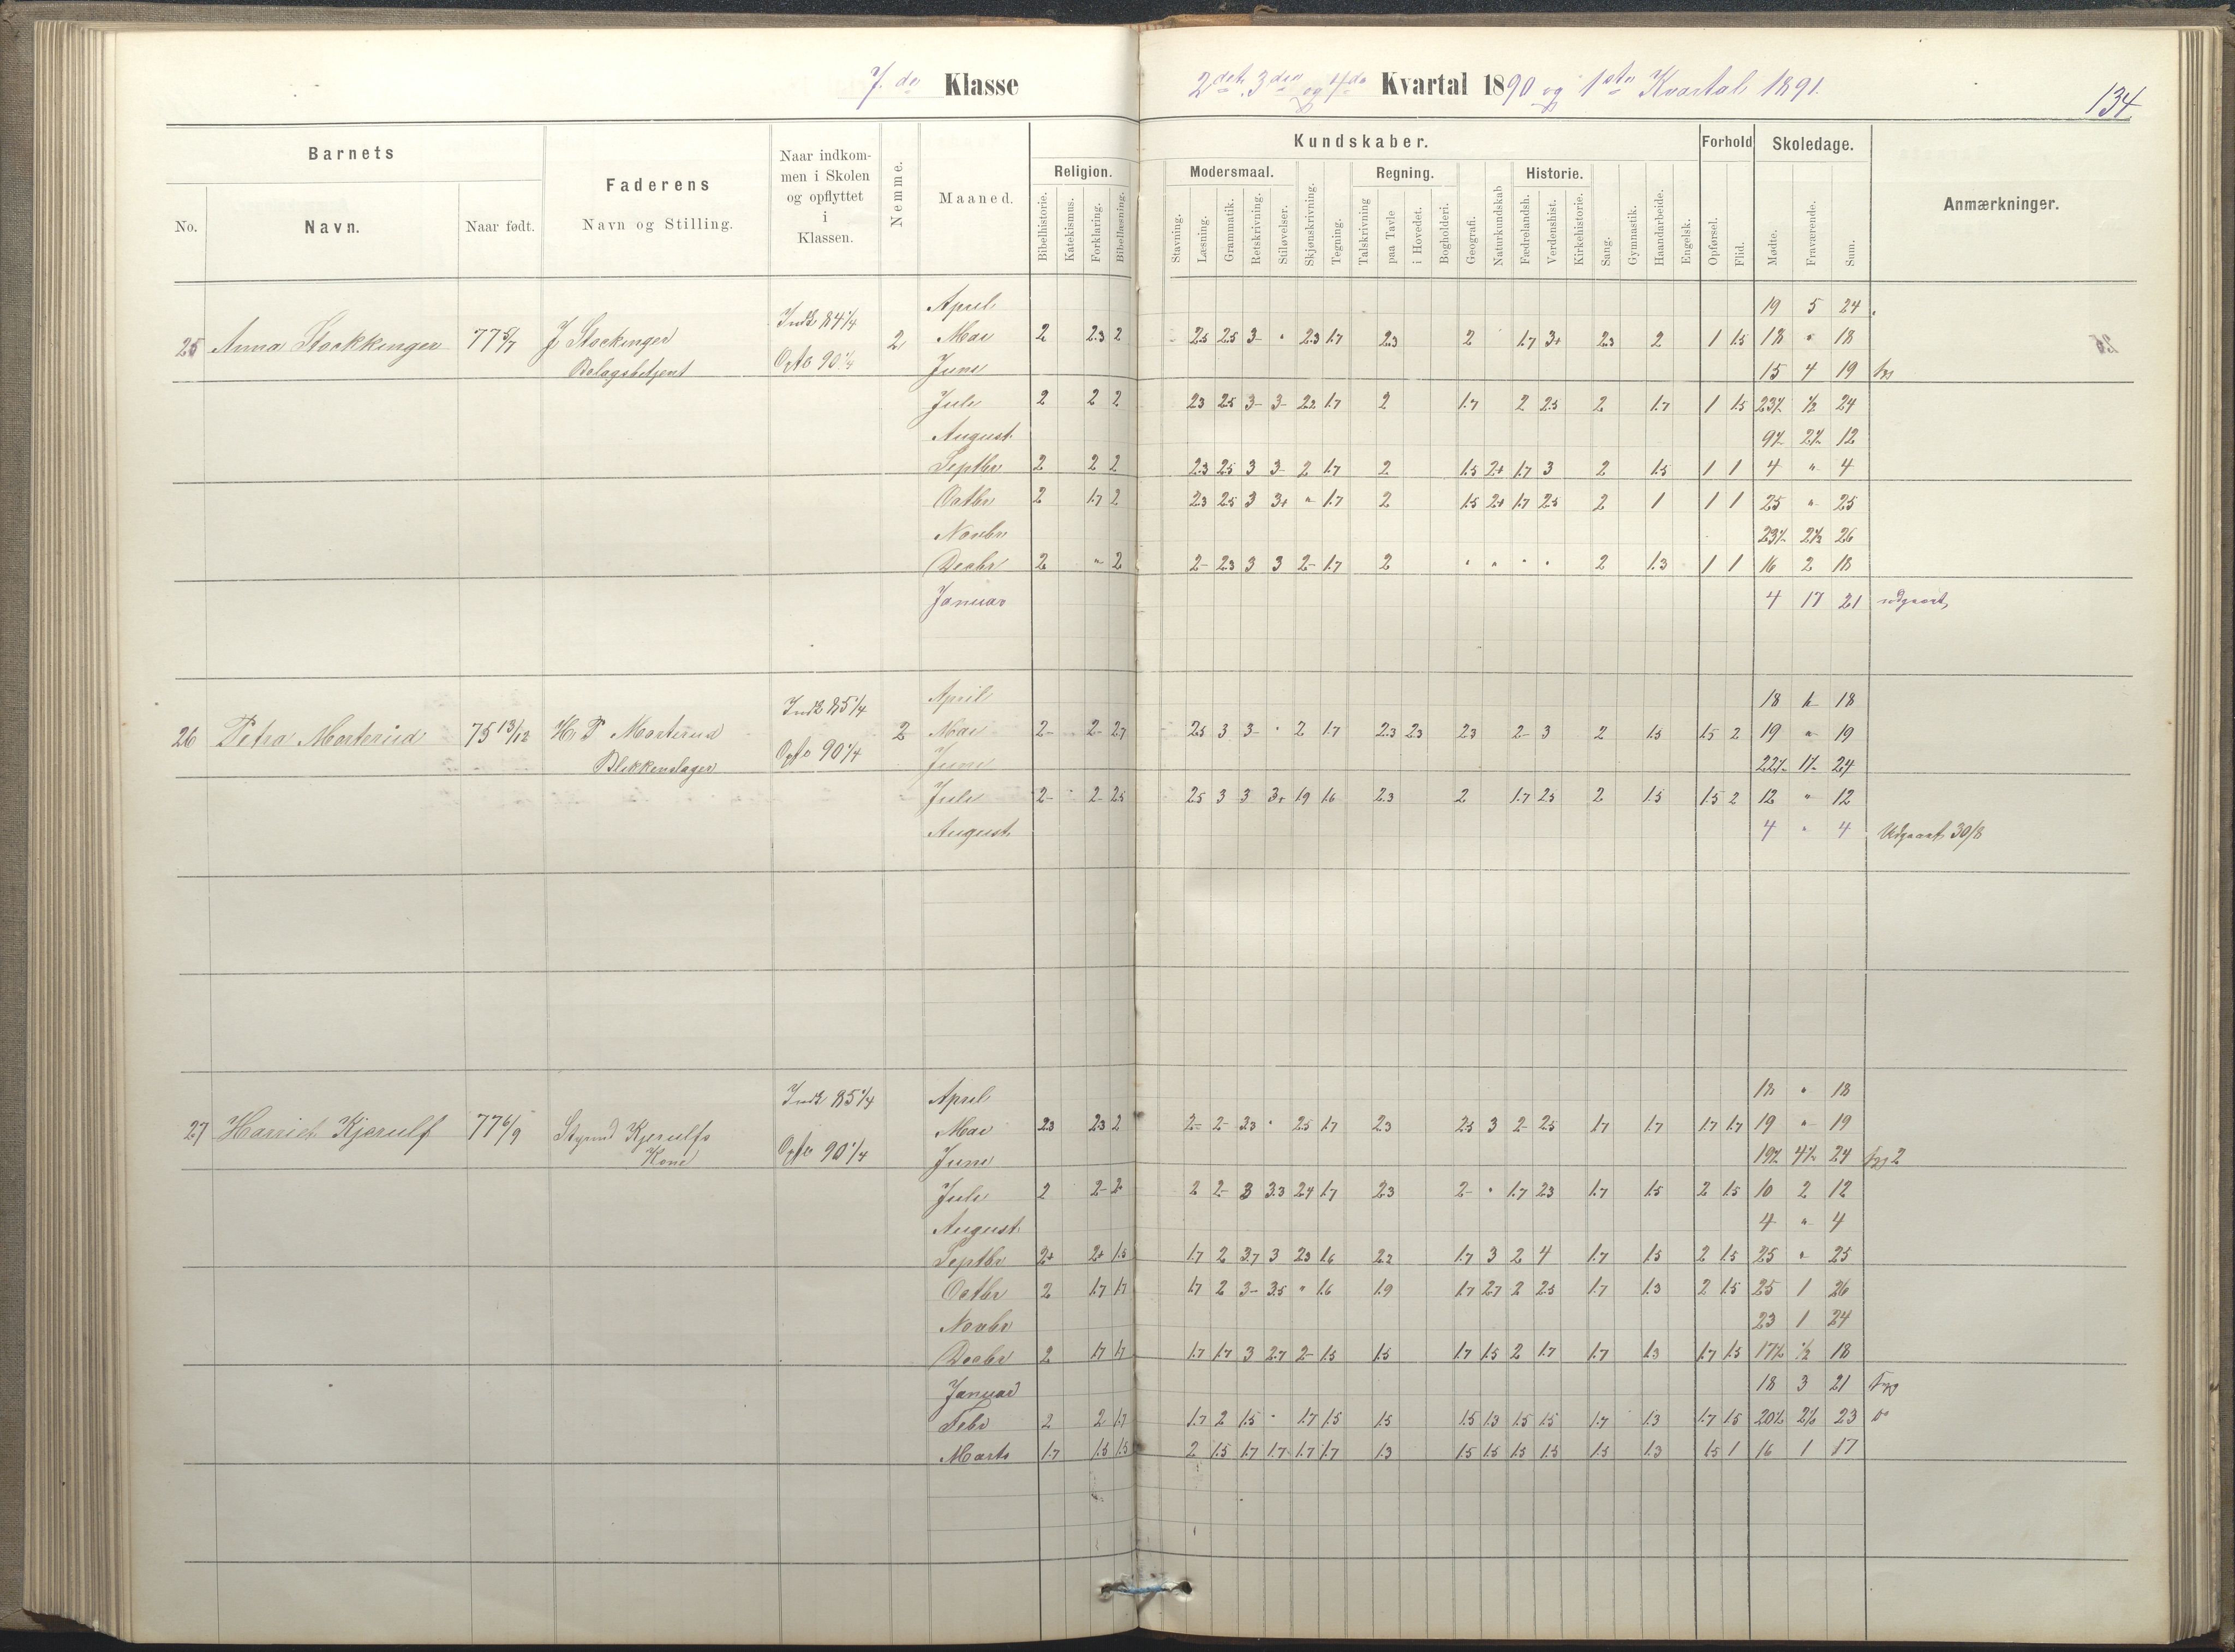 7. de Klasse
2det 3die og 4de Kvartal 1890 og 1ste Kvartal 1891.
134
Barnets
Faderens
Naar indkommen i Skolen og opflyttet i Klassen.
Nemme.
Maaned.
Religion.
Kundskaber.
Forhold
Skoledage.
Anmærkninger.
Modersmaal.
Regning.
Historie.
No.
Navn.
Naar født.
Navn og Stilling.
Bibelhistorie.
Katekismus.
Forklaring.
Bibellæsning.
Stavning.
Læsning.
Grammatik.
Retskrivning.
Stiløvelser.
Skjønskrivning.
Tegning.
Talskrivning
paa Tavle
i Hovedet.
Bogholderi.
Geografi.
Naturkundskab
Fædrelandsh.
Verdenshist.
Kirkehistorie.
Sang.
Gymnastik.
Haandarbeide.
Engelsk.
Opførsel.
Flid.
Mødte.
Fraværende.
Sum.
April 19 5 24
25 Anna Stockkinger 77 5/7 J Stockinger Indk 84 1/4 2 Mai 2 2.3 2 2.5 2.5 3- " 2.3 1.7 2.3 2 1.7 3+ 2.3 2 1 1.5 18 " 18
Bolagsbetjent Opfl 90 1/4 Juni 15 4 19
Juli 2 2 2 2.3 2.5 3- 3- 2.2 1.7 2 1.7 2 2.5 2 1.7 1 1.5 23½ ½ 24
August 9½ 2½ 12
Septbr 2 2 2 2.3 2.5 3 3- 2 1.7 2 1.5 2+ 1.7 3 2 1.5 1 1 4 " 4
Octbr 2 1.7 2 2.3 2.5 3 3+ " 1.7 2 1.5 2+ 1.7 2.5 2 1 1 1 25 " 25
Novbr 23½ 2½ 26
Decbr 2 " 2 2- 2.3 3 3 2- 1.7 2 " " " " 2 1.3 1 1 16 2 18
Januar 4 17 21 udgaaet,
April 18 " 18
26 Petra Morterud 75 13/12 H P Morterud Indk 85 1/4 2 Mai 2- 2- 2.7 2.5 3 3- " 2 1.7 2.3 2.3 2.3 2- 3 2 1.5 1.5 2 19 " 19
Blikkenslager Opfl 90 1/4 Juni 22½ 1½ 24
Juli 2- 2- 2.5 2.5 3 3 3+ 1.9 1.6 2.3 2 1.7 2.5 2 1.5 1.5 2 12 " 12
August 4 " 4 Udgaaet 30/8
April 18 " 18
27 Harriet Kjerulf 77 6/9 Styrmd Kjerulfs Indk 85 1/4 Mai 2.3 2.3 2 2- 2- 2.3 " 2.5 1.7 2.3 2.5 3 2- 2.5 1.7 1.7 1.7 1.7 19 " 19
Kone Opfl 90 1/4 Juni 19½ 4½ 24
Juli 2 2- 2- 2 2- 3 3.3 2.4 1.7 2.3 2- " 1.7 2.3 1.7 1.5 2 1.5 10 2 12
August 4 " 4
Septbr 2+ 2+ 1.5 1.7 2 3.7 3 2.3 1.6 2.2 1.7 3 2 4 1.7 1.5 2 1.5 25 " 25
Octbr 2 1.7 1.7 1.7 2 3- 3.5 " 1.6 1.9 1.7 2.7 2 2.5 1.7 1.3 2 1.5 25 1 26
Novbr 23 1 24
Decbr 2 1.7 1.7 1.7 1.7 3 2.7 2- 1.5 1.5 1.7 1.5 2 1.7 1.7 1.3 1.7 1.5 17½ ½ 18
Januar 18 3 21
Febr 2 2 1.7 1.7 2 1.5 " 1.7 1.5 1.5 1.5 1.3 1.5 1.5 1.7 1.3 1.7 1.5 20½ 2½ 23
Marts 1.7 1.5 1.5 2 1.5 1.7 1.7 1.7 1.7 1.3 1.5 1.5 1.5 1.5 1.5 1.3 1.5 1 16 1 17